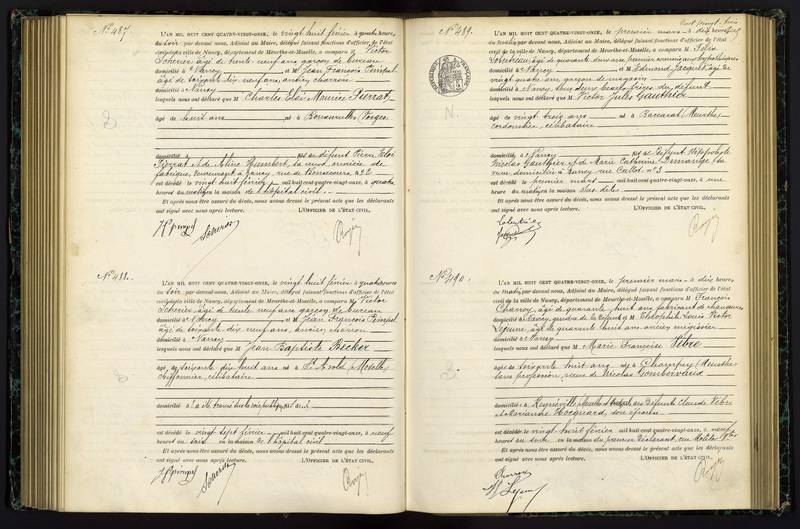 N.° 487.
L'AN MIL HUIT CENT QUATRE-VINGT-ONZE, le vingt huit février à quatre heures,
du soir, par devant nous, Adjoint au Maire, délégué faisant fonctions d'officier de l'état
civil de la ville de Nancy, département de Meurthe-et-Moselle, a comparu M Victor
Scherier âgé de trente neuf ans garçon de bureau
domicilié à Nancy et M Jean François
âgé de soixante dix neuf ans, ancien charron
domicilié à Nancy
lesquels nous ont déclaré que M Charles Eloi Maurice Pierrat,
âgé de huit ans né à (Vosges)
domicilié à Nancy fils de défunt Pierre Eloi
Pierrat et de Aline Humbert, sa veuve ouvrière de
fabrique, demeurant à Nancy, rue de Bonsecours,
est décédé le vingt huit février mil huit cent quatre-vingt-onze, à quatre
heures du matin en la maison de l'hôpital civil
Et après nous être assuré du décès, nous avons dressé le présent acte que les déclarants
ont signé avec nous après lecture. L'OFFICIER DE L'ÉTAT CIVIL,
N.° 488.
L'AN MIL HUIT CENT QUATRE-VINGT-ONZE, le vingt huit février à quatre heures
du soir, par devant nous, Adjoint au Maire, délégué faisant fonctions d'officier de l'état
civil de la ville de Nancy, département de Meurthe-et-Moselle, a comparu M Victor
Scherier, âgé de trente neuf ans garçon de bureau
domicilié à Nancy et M Jean François
âgé de soixante dix neuf ans, ancien charron
domicilié à Nancy
lesquels nous ont déclaré que M Jean Baptiste Becker
âgé de soixante dix huit ans né à St Avold (Moselle)
chiffonnier, célibataire
domicilié à
est décédé le vingt sept février mil huit cent quatre-vingt-onze, à neuf
heures du soir en la maison de l'hôpital civil
Et après nous être assuré du décès, nous avons dressé le présent acte que les déclarants
ont signé avec nous après lecture. L'OFFICIER DE L'ÉTAT CIVIL,
N.° 489.
L'AN MIL HUIT CENT QUATRE-VINGT-ONZE, le premier mars à dix heures
du matin par devant nous, Adjoint au Maire, délégué faisant fonctions d'officier de l'état
civil de la ville de Nancy, département de Meurthe-et-Moselle, a comparu M Félix
âgé de quarante deux ans, premier commis aux hypothèques
domicilié à Nancy et M Edmond Jacquot, âgé de
vingt quatre ans garçon de magasin
domicilié à Nancy, tous deux beaux frères du défunt
lesquels nous ont déclaré que M Victor Jules Gauthier
âgé de vingt trois ans né à Baccarat (Meurthe)
cordonnier, célibataire
domicilié à Nancy fils de défunt Hippolyte
Nicolas Gauthier et de Marie Catherine Demange, sa
veuve, domiciliée à Nancy, rue Callot n° 3
est décédé le premier mars mil huit cent quatre-vingt-onze, à une
heure du matin en la maison sus dite
Et après nous être assuré du décès, nous avons dressé le présent acte que les déclarants
ont signé avec nous après lecture. L'OFFICIER DE L'ÉTAT CIVIL,
N.° 490.
L'AN MIL HUIT CENT QUATRE-VINGT-ONZE, le premier mars à dix heures,
du matin, par devant nous, Adjoint au Maire, délégué faisant fonctions d'officier de l'état
civil de la ville de Nancy, département de Meurthe-et-Moselle, a comparu M François
âgé de quarante huit ans fabricant de chaussures
domicilié à Nancy, gendre de la défunte et M Théophile Louis Victor
Lejeune, âgé de quarante huit ans ancien
domicilié à Nancy
lesquels nous ont déclaré que M Marie Françoise Vibre
âgée de soixante huit ans née à Champey (Meurthe)
sans profession, veuve de Nicolas
domiciliée à fille des défunts Claude Vibre
et Marianne Hocquard, son épouse
est décédée le vingt huit février mil huit cent quatre-vingt-onze, à neuf
heures du soir en la maison du premier déclarant, rue
Et après nous être assuré du décès, nous avons dressé le présent acte que les déclarants
ont signé avec nous après lecture. L'OFFICIER DE L'ÉTAT CIVIL,